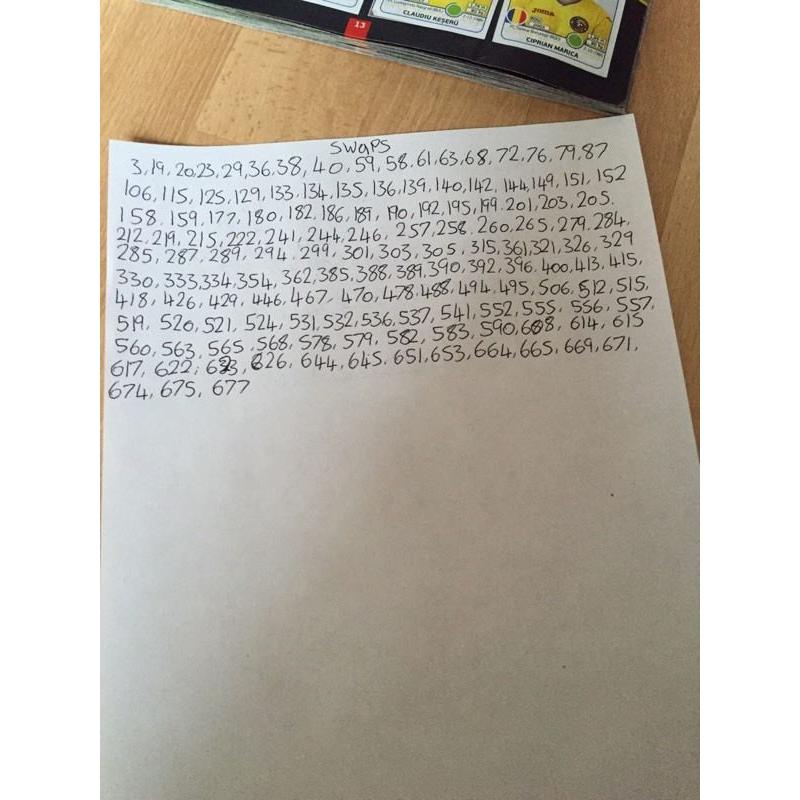 13
CLAUDIU KEȘERÜ
JOMA
CIPRIAN MARICA
SWAPS
3,19,20,23,29,36,38,40,59,58,61,63,68,72,76,79,87
106,115,125,129,133,134,135,136,139,140,142,144,149,151,152
158,159,177,180,182,186,189,190,192,195,199,201,203,205.
212,219,215,222,241,244,246,257,258,260,265,279,284,
285,287,289,294,299,301,303,305,315,361,321,326,329
330,333,334,354,362,385,388,389,390,392,396,400,413,415,
418,426,429,446,467,470,478,488,494,495,506,512,515,
519,520,521,524,531,532,536,537,541,552,555,556,557,
560,563,565,568,578,579,582,583,590,608,614,615
617,622,623,626,644,645,651,653,664,665,669,671,
674,675,677